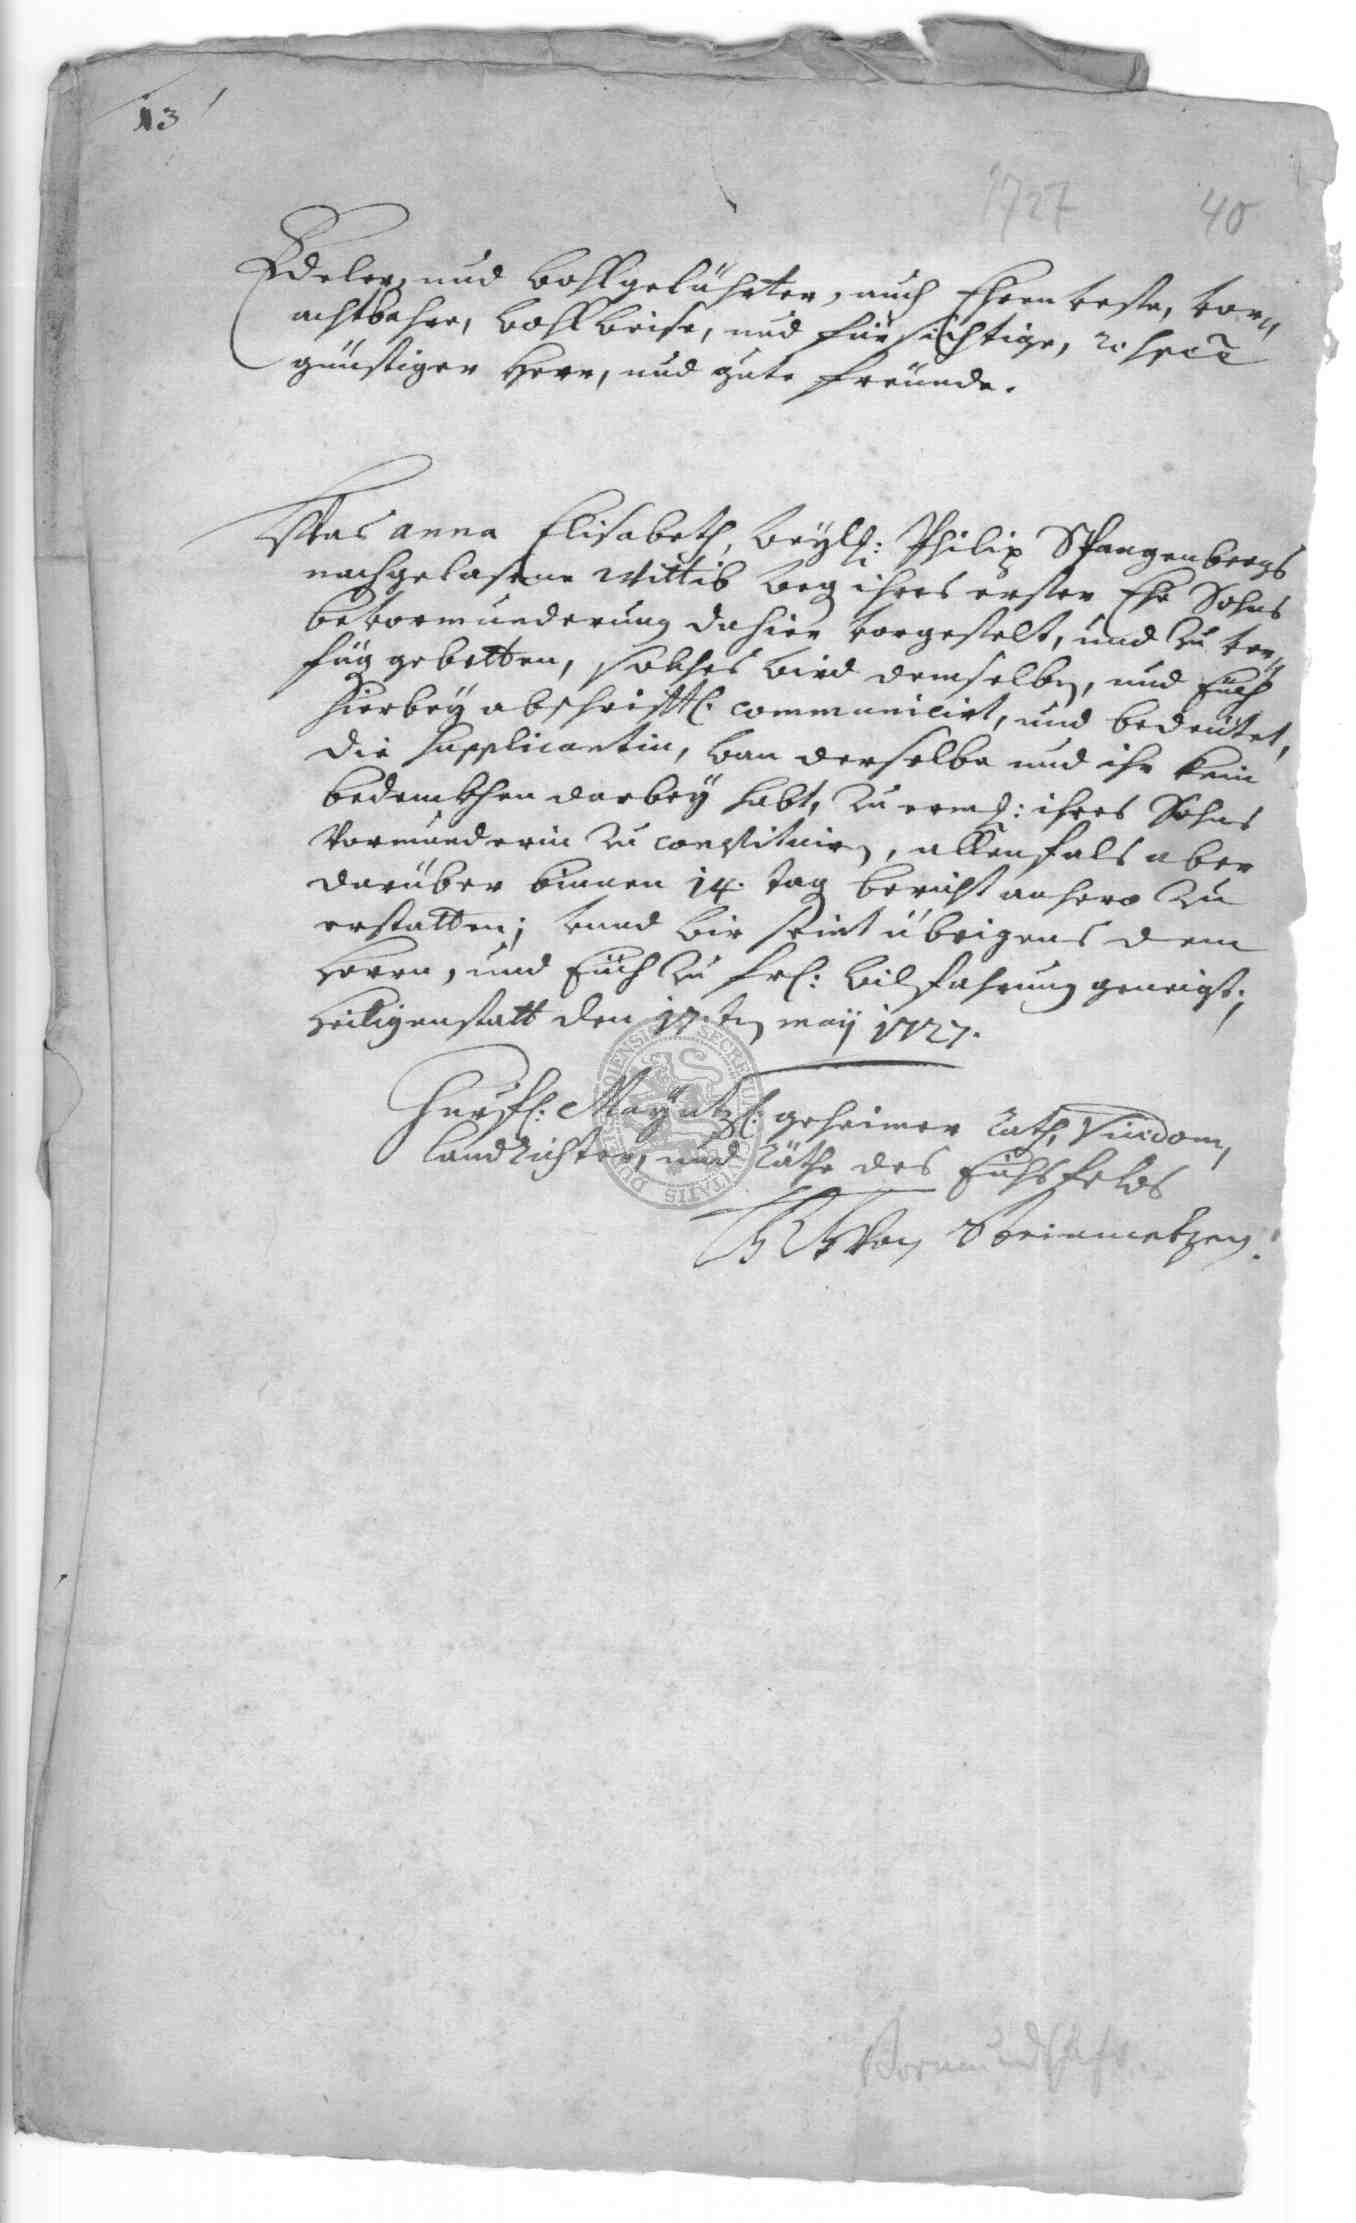 13
1727
40
Edeler, und wohlgelährter, auch Ehrenveste, vor„
achtbahre, wohlweise, und fürsichtige,
günstiger Herr, und gute freünde.
Was anna Elisabeth, weyl: Philip Spangenbergs
nachgelasene Wittib weg ihres erster Ehe Sohns
bevormunderung dahier vorgestelt, und zu ver„
füg gebetten, solches wird demselben, und Euch
hierbey abschrifftl. communicirt, und bedeütet,
die supplicantin, wan derselbe und ihr kein
bedenckhen darbey habt, zu ermel: ihres Sohns
Vormunderin zu constituiren, allenfals aber
darüber binnen 14. tag bericht anhero zu
erstatten; und wir seint übrigens dem
Herrn, und Euch zu frl: wilfahrung geneigt;
Heiligenstatt den 17.ten may 1727.
Churfl: Mayntzl: geheimer Rath, Vicedom,
Landrichter, und Räthe des Eichsfelds
SECRETUM
Vormundschaft